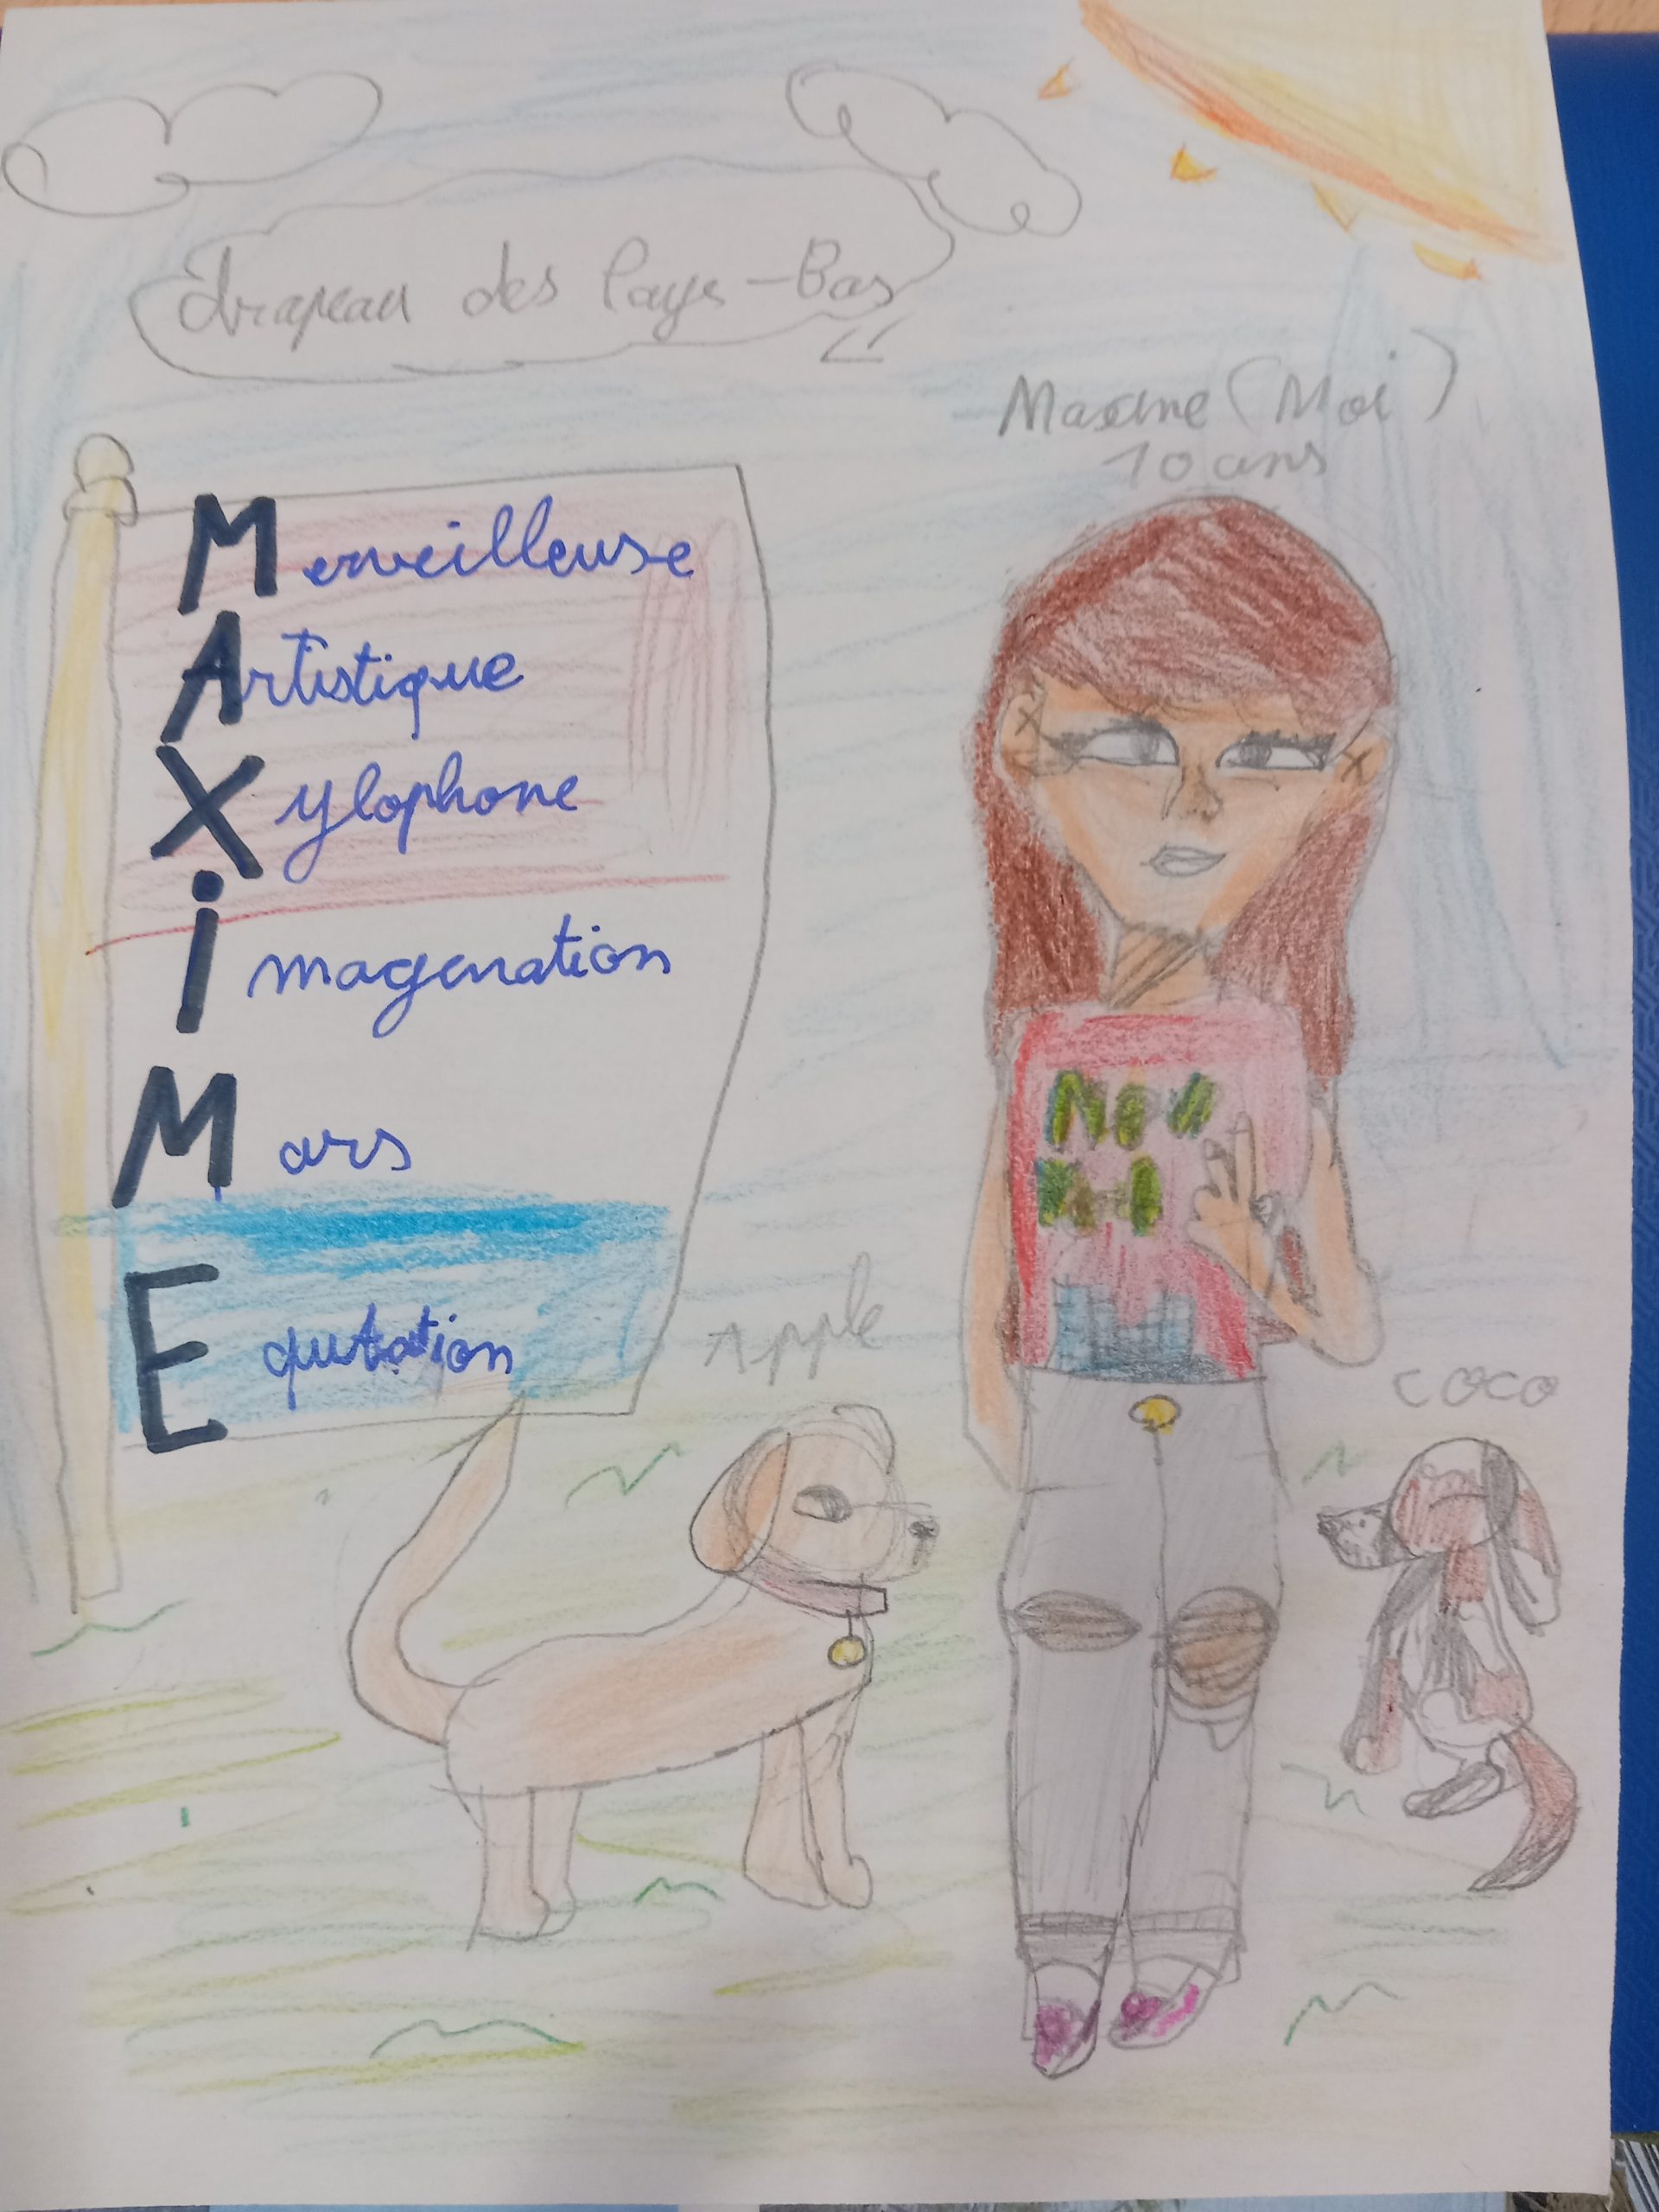 drapeau des Pays-Bas
Maxime (Moi)
10 ans
Merveilleuse
Artistique
Xylophone
imagination
Mars
Equitation
Apple
coco
New